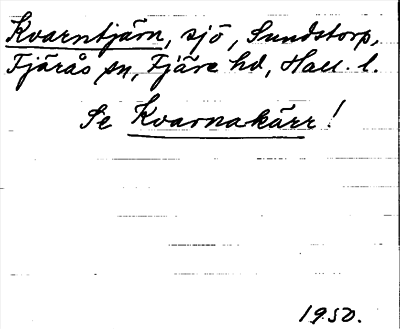 Kvarntjärn, sjö, Sundstorp,
Fjärås sn, Fjäre hd, Hall. l.
Se Kvarnakärr!
1950.